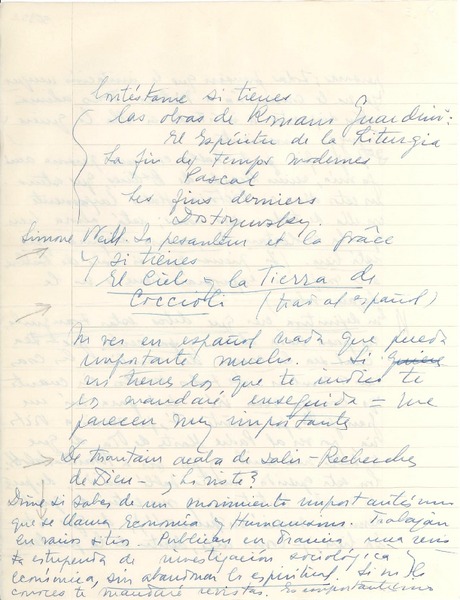 Contéstame si tienes
las obras de Romano Guardini:
El Espíritu de la Liturgia
La fin des Temps modernes
Pascal
Les fins derniers
Dostoyewsky.
Simone Weill. La pesanteur et la grâce
y si tienes
El Cielo y la Tierra de
Coccioli (trad al español)
No ves en español nada que pueda
importarte mucho. Si
no tienes los que te indico te
los mandaré enseguida = me
parecen muy importante
De Maritain acaba de salir - Recherches
de Dieu - ¿Lo viste?
Dime si sabes de un movimiento importantísimo
que se llama Economía y Humanismo. Trabajan
en varios sitios. Publican en Francia una revis
ta estupenda de investigación sociológica y
económica, sin abandonar lo espiritual. Si no lo
conoces te mandaré revistas. Es importantísimo